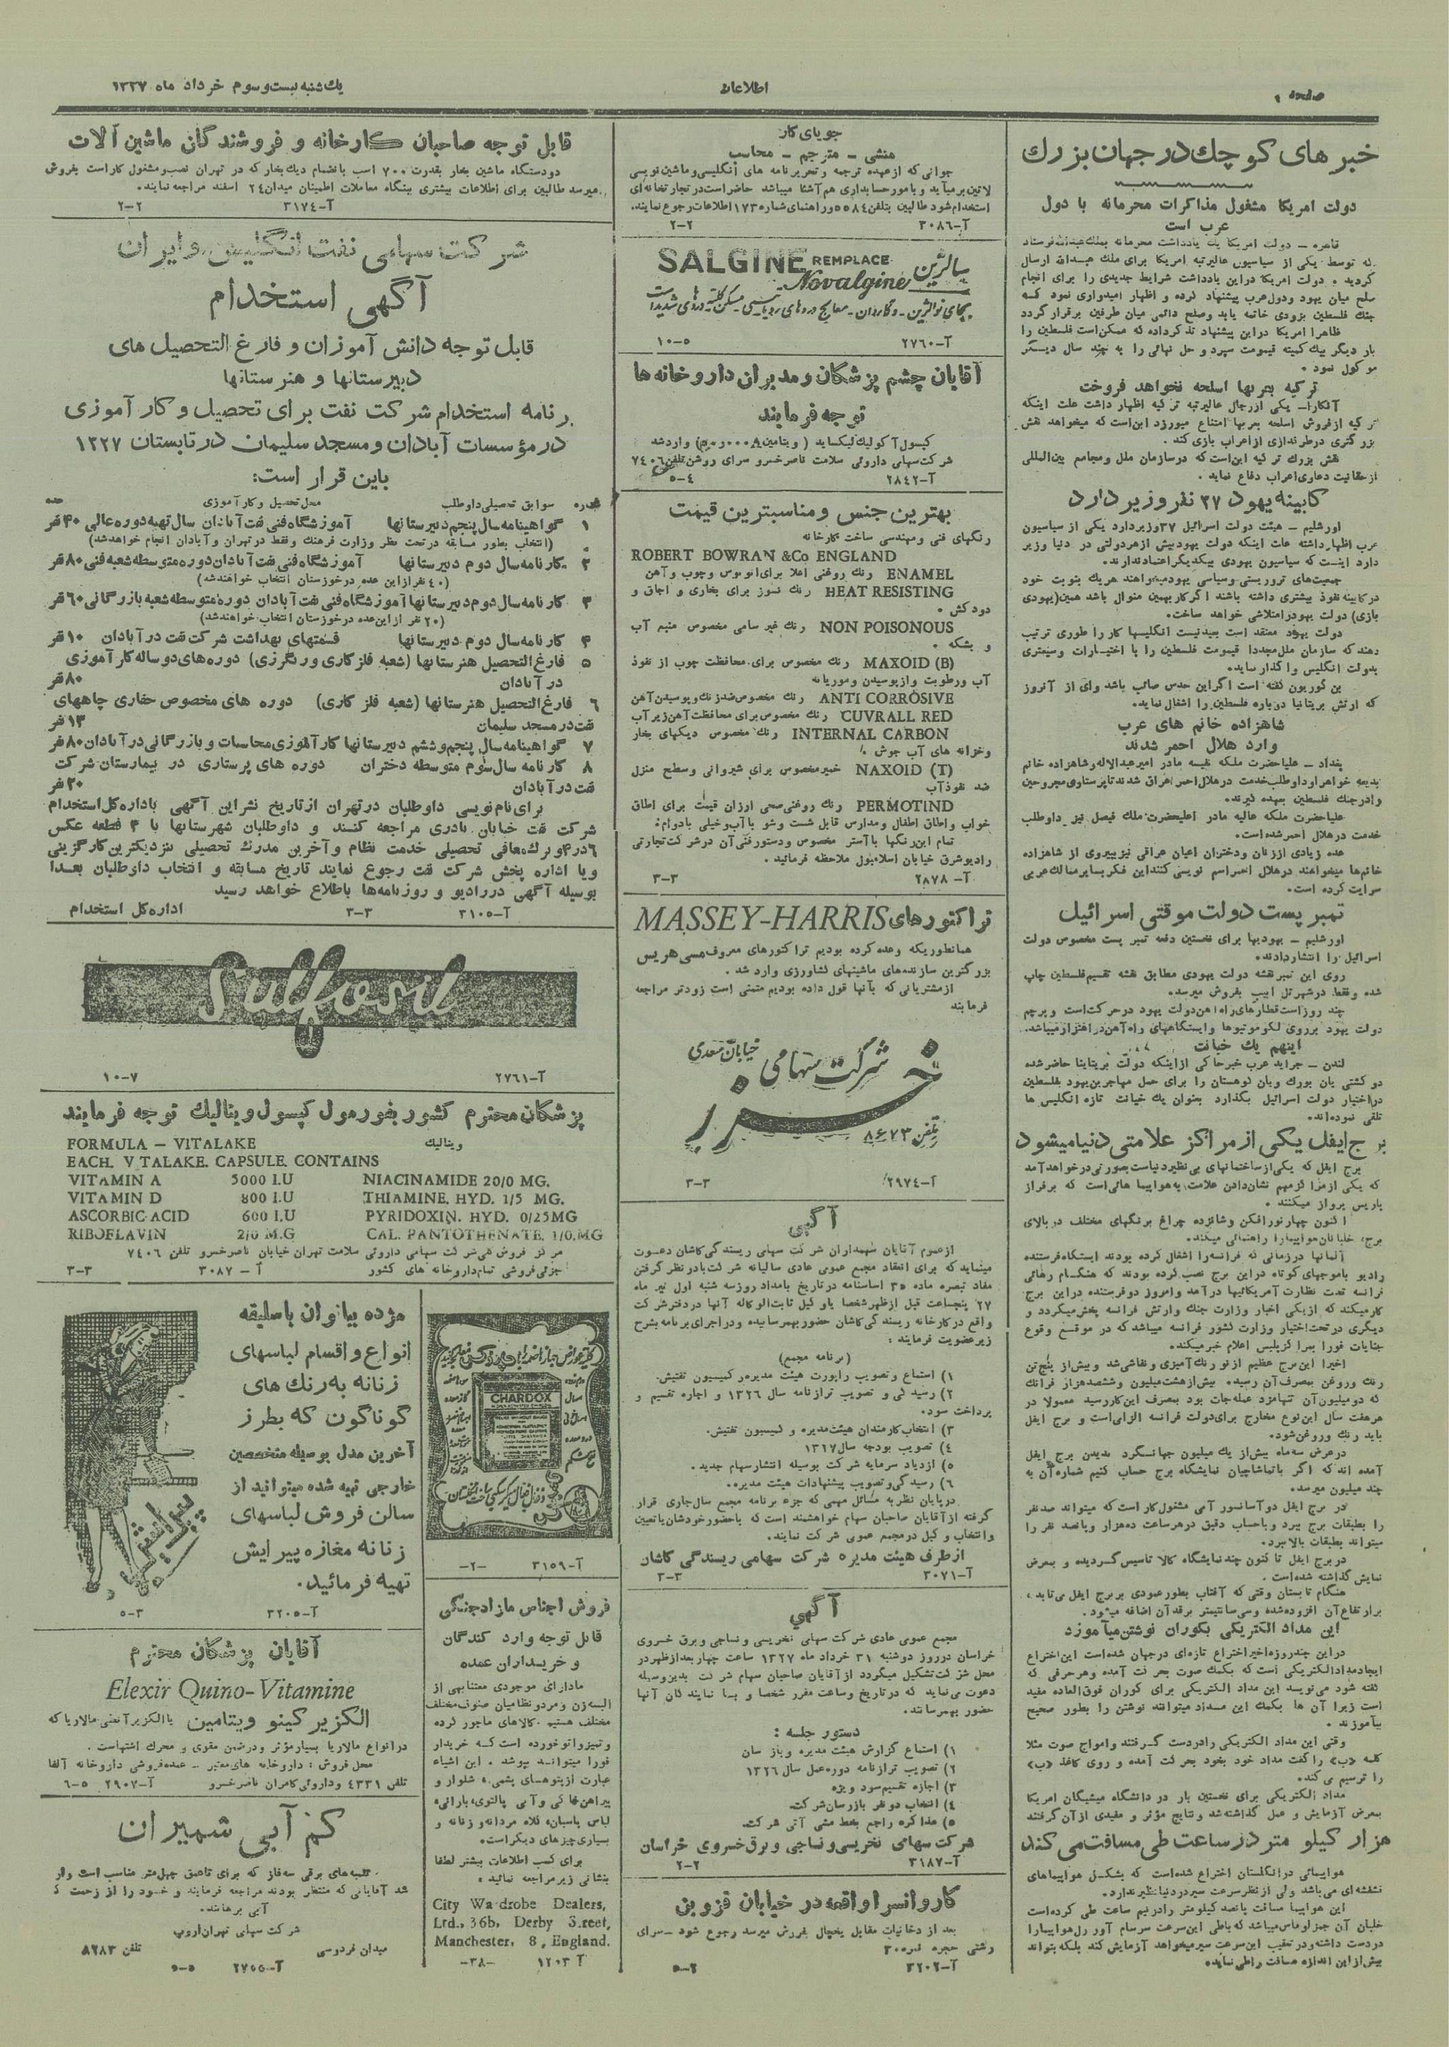 صفحه ۱
اطلاعات
یک‌شنبه بیست‌وسوم خرداد ماه ۱۳۲۷
خبرهای کوچک در جهان بزرگ
دولت امریکا مشغول مذاکرات محرمانه با دول
عرب است
قاهره – دولت امریکا یک یادداشت محرمانه بملک عبدالله فرستاد
که توسط یکی از سیاسیون عالیرتبه امریکا برای ملک عبدالله ارسال
گردید . دولت امریکا در این یادداشت شرایط جدیدی را برای انجام
صلح میان یهود و دول عرب پیشنهاد کرده و اظهار امیدواری نمود که
جنگ فلسطین بزودی خاتمه یابد و صلح دائمی میان طرفین برقرار گردد
ظاهرا امریکا در این پیشنهاد تذکر داده که ممکن است فلسطین را
بار دیگر بیک کمیته قیمومت سپرد و حل نهائی را به چند سال دیگر
موکول نمود .
ترکیه بعربها اسلحه نخواهد فروخت
آنکارا – یکی از رجال عالیرتبه ترکیه اظهار داشت علت اینکه
ترکیه از فروش اسلحه بعربها امتناع میورزد این است که میخواهد نقش
بزرگتری در طرفداری از اعراب بازی کند .
نقش بزرگ ترکیه این است که در سازمان ملل و مجامع بین‌المللی
از حقانیت دعاوی اعراب دفاع نماید .
کابینه یهود ۳۷ نفر وزیر دارد
اورشلیم – هیئت دولت اسرائیل ۳۷ وزیر دارد یکی از سیاسیون
عرب اظهار داشته علت اینکه دولت یهود بیش از هر دولتی در دنیا وزیر
دارد اینست که سیاسیون یهودی بیکدیگر اعتماد ندارند.
جمعیت‌های تروریستی و سیاسی یهود میخواهند هریک بنوبت خود
در کابینه نفوذ بیشتری داشته باشند اگر کار بهمین منوال باشد همین (یهودی
بازی) دولت یهود را متلاشی خواهد ساخت.
دولت یهود معتقد است بعید نیست انگلیسها کار را طوری ترتیب
دهند که سازمان ملل مجددا قیمومت فلسطین را با اختیارات وسیعتری
بدولت انگلیس واگذار نماید.
بن گوریون گفته است اگر این حدس صائب باشد وای از آنروز
که ارتش بریتانیا دوباره فلسطین را اشغال نماید.
شاهزاده خانم های عرب
وارد هلال احمر شدند
بغداد – علیاحضرت ملکه نفیسه مادر امیر عبدالاله و شاهزاده خانم
بدیعه خواهر او داوطلب خدمت در هلال احمر شدند تا پرستاری مجروحین
را در جنگ فلسطین بعهده گیرند.
علیاحضرت ملکه عالیه مادر اعلیحضرت ملک فیصل نیز داوطلب
خدمت در هلال احمر شده است.
عده زیادی از زنان و دختران اعیان عراقی نیز بپیروی از شاهزاده
خانم‌ها میخواهند در هلال احمر اسم نویسی کنند این فکر بسایر ممالک عربی
سرایت کرده است.
تمبر پست دولت موقتی اسرائیل
اورشلیم – یهودیها برای نخستین دفعه تمبر پست مخصوص دولت
اسرائیل را انتشار دادند.
روی این تمبر نقشه دولت یهودی مطابق نقشه تقسیم فلسطین چاپ
شده و فقط در شهر تل ابیب بفروش میرسد.
چند روز است قطارهای راه‌آهن دولت یهود در حرکت است و پرچم
دولت یهود برروی لکوموتیوها و ایستگاههای راه آهن در اهتزاز میباشد.
اینهم یک خیانت
لندن – جراید عرب خبر حاکی از اینکه دولت بریتانیا حاضر شده
دو کشتی پان یورک و پان کوهستان را برای حمل مهاجرین یهود بفلسطین
در اختیار دولت اسرائیل بگذارد بعنوان یک خیانت تازه انگلیس ها
تلقی نموده‌اند.
برج ایفل یکی از مراکز علامتی دنیا میشود
برج ایفل که یکی از ساختمانهای بی نظیر دنیاست بصورتی در خواهد آمد
که یکی از مراکز مهم نشان دادن علامت به هواپیما هائی است که بر فراز
پاریس پرواز میکنند .
اکنون چهار نورافکن و شانزده چراغ برنگهای مختلف در بالای
برج، خلبانان هواپیما را راهنمائی میکند.
آلمانها در زمانی که فرانسه را اشغال کرده بودند ایستگاه فرستنده
رادیو با موجهای کوتاه در این برج نصب کرده بودند که هنگام رهائی
فرانسه تحت نظارت آمریکائیها درآمد و امروز دو فرستنده در این برج
کار میکند که از یکی اخبار وزارت جنگ و ارتش فرانسه پخش میگردد و
دیگری در تحت اختیار وزارت کشور فرانسه میباشد که در موقع وقوع
جنایات فورا بمراکز پلیس اعلام خبر میکند.
اخیرا این برج عظیم از نو رنگ آمیزی و نقاشی شد و بیش از پنج تن
رنگ و روغن بمصرف آن رسید، بیش از هشت میلیون و ششصد هزار فرانک
که دو میلیون آن تنها مزد عمله‌جات بود بمصرف این کار رسید معمولا در
هر هفت سال این نوع مخارج برای دولت فرانسه الزامی است و برج ایفل
باید رنگ و روغن شود.
در عرض سه ماه بیش از یک میلیون جهانگرد بدیدن برج ایفل
آمده اند که اگر با تماشاچیان نمایشگاه برج حساب کنیم شماره آن به
چند میلیون میرسد.
در برج ایفل دو آسانسور آبی مشغول کار است که میتواند صد نفر
را بطبقات برج ببرد و با حساب دقیق در هر ساعت ده هزار و پانصد نفر را
میتواند بطبقات بالا ببرد.
در برج ایفل تا کنون چند نمایشگاه کالا تاسیس گردیده و بمعرض
نمایش گذاشته شده است .
هنگام تابستان وقتی که آفتاب بطور عمودی بر برج ایفل می‌تابد ،
بر ارتفاع آن افزوده شده و سی سانتیمتر بر قد آن اضافه میشود.
این مداد الکتریکی بکوران نوشتن میآموزد
در این چند روزه اخیر اختراع تازه‌ای در جهان شده است این اختراع
ایجاد مداد الکتریکی است که بکمک صوت بحرکت آمده و هر حرفی که
گفته شود می‌نویسد این مداد الکتریکی برای کوران فوق‌العاده مفید
است زیرا آن ها بکمک این مداد میتوانند نوشتن را بطور صحیح
بیآموزند .
وقتی این مداد الکتریکی را در دست گرفتند و امواج صوت مثلا
کلمه «ب» را گفت مداد خود بخود بحرکت آمده و روی کاغذ «ب»
را ترسیم می‌کند.
مداد الکتریکی برای نخستین بار در دانشگاه میشیگان امریکا
بمعرض آزمایش و عمل گذاشته شد و نتایج مؤثر و مفیدی از آن گرفتند
هزار کیلو متر در ساعت طی مسافت می‌کند
هواپیمائی در انگلستان اختراع شده است که بشکل هواپیماهای
نقشه‌ای می‌باشد ولی از نظر سرعت سیر در دنیا نظیر ندارد.
این هواپیما مسافت پانصد کیلومتر را در نیم ساعت طی کرده است
خلبان آن جیز لوماس میباشد که با طی این سرعت سرسام آور رل هواپیما را
در دست داشته و در تعقیب این سرعت سیر میخواهد آزمایش کند بلکه بتواند
بیش از این اندازه مسافت را طی نماید.
جویای کار
منشی – مترجم – محاسب
جوانی که از عهده ترجمه و تحریر نامه های انگلیسی و ماشین نویسی
لاتین برمیآید و بامور حسابداری هم آشنا میباشد حاضر است در تجارتخانه‌ای
استخدام شود طالبین بتلفن ۵۵۸۴ و راهنمای شماره ۱۷۳ اطلاعات رجوع نمایند.
آ–۳۰۸۶ ۲–۲
SALGINE REMPLACE Novalgine سالژین
بجای نوالژین
آ–۲۷۶۰ ۵–۱۰
آقایان چشم پزشکان و مدیران داروخانه ها
توجه فرمایند
کپسول آکولیک لیکساید ( ویتامین ) وارد شد
شرکت سهامی داروئی سلامت ناصرخسرو سرای روشن تلفن ۷۴۰۶
آ–۲۸۴۲ ۴–۵
بهترین جنس و مناسبترین قیمت
رنگهای فنی و مهندسی ساخت کارخانه
ROBERT BOWRAN & Co ENGLAND
ENAMEL رنگ روغنی اعلا برای اتوبوس و چوب و آهن
HEAT RESISTING رنگ نسوز برای بخاری و اجاق و
دودکش .
NON POISONOUS رنگ غیر سامی مخصوص منبع آب
و بشکه .
MAXOID (B) رنگ مخصوص برای محافظت چوب از نفوذ
آب و رطوبت و از پوسیدن و موریانه
ANTI CORROSIVE رنگ مخصوص ضد زنگ و پوسیدن آهن
CUVRALL RED رنگ مخصوص برای محافظت آهن زیر آب
INTERNAL CARBON رنگ مخصوص دیگهای بخار
و خزانه های آب جوش
NAXOID (T) خمیر مخصوص برای شیروانی و سطح منزل
ضد نفوذ آب
PERMOTIND رنگ روغنی صحی ارزان قیمت برای اطاق
خواب و اطاق اطفال و مدارس قابل شست و شو با آب و خیلی بادوام؛
تمام این رنگها با آستر مخصوص و دستور فنی آن در شرکت تجارتی
رادیو شرق خیابان اسلامبول ملاحظه فرمائید .
آ– ۲۸۷۸ ۳–۳
تراکتورهای MASSEY-HARRIS
همانطوریکه وعده کرده بودیم تراکتورهای معروف مسی هریس
بزرگترین سازنده‌های ماشینهای فلاحتی وارد شد .
از مشتریانی که بآنها قول داده بودیم متمنی است زودتر مراجعه
فرمایند
شرکت سهامی خیابان سعدی
خزر
تلفن ۸۶۷۳
آ–۲۹۷۴ ۳–۳
آگهی
از عموم آقایان سهمداران شرکت سهامی ریسندگی کاشان دعوت
مینماید که برای انعقاد مجمع عمومی عادی سالیانه شرکت با در نظر گرفتن
مفاد تبصره ماده ۳۵ اساسنامه در تاریخ بامداد روز سه شنبه اول تیر ماه
۲۷ پنجساعت قبل از ظهر شخصا یا وکیل ثابت‌الوکاله آنها در دفتر شرکت
واقع در کارخانه ریسندگی کاشان حضور بهمرسانیده و در اجرای برنامه بشرح
زیر عضویت فرمایند :
(برنامه مجمع)
۱) استماع و تصویب راپورت هیئت مدیره و کمیسیون تفتیش.
۲) رسیدگی و تصویب ترازنامه سال ۱۳۲۶ و اجازه تقسیم و
پرداخت سود.
۳) انتخاب کارمندان هیئت مدیره و کمیسیون تفتیش.
۴) تصویب بودجه سال ۱۳۲۷
۵) ازدیاد سرمایه شرکت بوسیله انتشار سهام جدید.
۶) رسیدگی و تصویب پیشنهادات هیئت مدیره.
در پایان نظر به مسائل مهمی که جزء برنامه مجمع سال جاری قرار
گرفته از آقایان صاحبان سهام خواهشمند است که با حضور خودشان یا تعیین
و انتخاب وکیل در مجمع عمومی شرکت نمایند.
از طرف هیئت مدیره شرکت سهامی ریسندگی کاشان
آ–۳۰۷۱ ۳–۳
آگهی
مجمع عمومی عادی شرکت سهامی نخریسی و نساجی و برق خسروی
خراسان در روز دوشنبه ۳۱ خرداد ماه ۱۳۲۷ ساعت چهار بعد از ظهر در
محل شرکت تشکیل میگردد از آقایان صاحبان سهام شرکت بدین‌وسیله
دعوت می‌نماید که در تاریخ و ساعت مقرر شخصا و یا نمایندگان آنها
حضور بهمرسانند.
دستور جلسه :
۱) استماع گزارش هیئت مدیره و بازرسان
۲) تصویب ترازنامه دوره عمل سال ۱۳۲۶
۳) اجازه تقسیم سود ویژه
۴) انتخاب دو نفر بازرسان شرکت.
۵) مذاکره راجع بخط مشی آتی شرکت.
شرکت سهامی نخریسی و نساجی و برق خسروی خراسان
آ–۳۱۸۷ ۲–۲
کاروانسرا واقعه در خیابان قزوین
بعد از دخانیات مقابل یخچال بفروش میرسد رجوع شود – سرای
رشتی حجره نمره ۳۰
آ–۳۲۰۲ ۲–۵
قابل توجه صاحبان کارخانه و فروشندگان ماشین آلات
دو دستگاه ماشین بخار بقدرت ۷۰۰ اسب بانضمام دیگ بخار که در تهران نصب و مشغول کار است بفروش
میرسد طالبین برای اطلاعات بیشتری ببنگاه معاملات اطمینان میدان ۲۴ اسفند مراجعه نمایند.
آ–۳۱۷۴ ۲–۲
شرکت سهامی نفت انگلیس و ایران
آگهی استخدام
قابل توجه دانش آموزان و فارغ التحصیل های
دبیرستانها و هنرستانها
برنامه استخدام شرکت نفت برای تحصیل و کارآموزی
در مؤسسات آبادان و مسجد سلیمان در تابستان ۱۳۲۷
باین قرار است:
شماره سوابق تحصیلی داوطلب محل تحصیل و کارآموزی عده
۱ گواهینامه سال پنجم دبیرستانها آموزشگاه فنی نفت آبادان سال تهیه دوره عالی ۴۰ نفر
(انتخاب بطور مسابقه در تحت نظر وزارت فرهنگ و فقط در تهران و آبادان انجام خواهد شد)
۲ کارنامه سال دوم دبیرستانها آموزشگاه فنی نفت آبادان دوره متوسطه شعبه فنی ۸۰ نفر
(۴۰ نفر از این عده در خوزستان انتخاب خواهند شد)
۳ کارنامه سال دوم دبیرستانها آموزشگاه فنی نفت آبادان دوره متوسطه شعبه بازرگانی ۶۰ نفر
(۲۰ نفر از این عده در خوزستان انتخاب خواهند شد)
۴ کارنامه سال دوم دبیرستانها قسمتهای بهداشت شرکت نفت در آبادان ۱۰ نفر
۵ فارغ التحصیل هنرستانها (شعبه فلزکاری و رنگرزی) دوره‌های دو ساله کارآموزی
در آبادان ۸۰ نفر
۶ فارغ التحصیل هنرستانها (شعبه فلزکاری) دوره های مخصوص حفاری چاههای
نفت در مسجد سلیمان ۱۳ نفر
۷ گواهینامه سال پنجم و ششم دبیرستانها کارآموزی محاسبات و بازرگانی در آبادان ۸۰ نفر
۸ کارنامه سال سوم متوسطه دختران دوره های پرستاری در بیمارستان شرکت
نفت در آبادان ۲۰ نفر
برای نام نویسی داوطلبان در تهران از تاریخ نشر این آگهی باداره کل استخدام
شرکت نفت خیابان نادری مراجعه کنند و داوطلبان شهرستانها با ۴ قطعه عکس
۶ در ۴ و برگ معافی تحصیلی خدمت نظام و آخرین مدرک تحصیلی بنزدیکترین کارگزینی
و یا اداره پخش شرکت نفت رجوع نمایند تاریخ مسابقه و انتخاب داوطلبان بعدا
بوسیله آگهی در رادیو و روزنامه‌ها باطلاع خواهد رسید
آ–۳۱۰۵ ۳–۳ اداره کل استخدام
Sulfasil
آ–۲۷۶۱ ۷–۱۰
پزشکان محترم کشور بفورمول کپسول ویتالیک توجه فرمایند
FORMULA – VITALAKE ویتالیک
EACH. V TALAKE. CAPSULE. CONTAINS
VITAMIN A 5000 I.U NIACINAMIDE 20/0 MG.
VITAMIN D 800 I.U THIAMINE. HYD. 1/5 MG.
ASCORBIC ACID 600 I.U PYRIDOXIN. HYD. 0/25MG
RIBOFLAVIN 2/0 M.G CAL. PANTOTHENATE. 1/0.MG
مرکز فروش شرکت سهامی داروئی سلامت تهران خیابان ناصرخسرو تلفن ۷۴۰۶
جزئی فروشی تمام داروخانه های کشور آ – ۳۰۸۷ ۳–۳
CHARDOX
آ–۳۱۵۹ –۲–
فروش اجناس مازاد جنگی
قابل توجه وارد کنندگان
و خریداران عمده
ما دارای موجودی معتنابهی از
البسه زن و مرد و نظامیان صنوف مختلف
مختلف هستیم. کالاهای ماجور کرده
و تمیز و اتو خورده است که خریدار
فورا میتواند بپوشد . این اشیاء
عبارت از پتوهای پشمی، شلوار و
پیراهن خاکی و آبی پالتوی، بارانی،
لباس پاسبان، کلاه مردانه و زنانه و
بسیاری چیزهای دیگر است.
برای کسب اطلاعات بیشتر لطفا
بنشانی زیر مراجعه نمائید .
City Wardrobe Dealers,
Ltd., 36b, Derby S.reet,
Manchester, 8, England.
آ ۱۲۰۳ –۳۸–
مژده ببانوان باسلیقه
انواع و اقسام لباسهای
زنانه به رنگ های
گوناگون که بطرز
آخرین مدل بوسیله متخصصین
خارجی تهیه شده میتوانید از
سالن فروش لباسهای
زنانه مغازه پیرایش
تهیه فرمائید.
پیرایش
آ–۳۲۰۵ ۳–۵
آقایان پزشکان محترم
Elexir Quino-Vitamine
الکزیر کینو ویتامین یا الکزیر آنتی مالاریا که
در انواع مالاریا بسیار مؤثر و در ضمن مقوی و محرک اشتهاست .
محل فروش : داروخانه های معتبر – عمده فروشی داروخانه آلفا
تلفن ۴۳۳۱ و داروئی کامران ناصرخسرو آ–۲۹۰۷ ۵–۶
کم آبی شمیران
تلمبه‌های برقی سه فاز که برای تا عمق چهل متر مناسب است وارد
شد آقایانی که منتظر بودند مراجعه فرمایند و خود را از زحمت کم
آبی برهانند.
شرکت سهامی تهران اروپ
میدان فردوسی تلفن ۸۲۸۳
آ–۲۷۵۵ ۵–۵